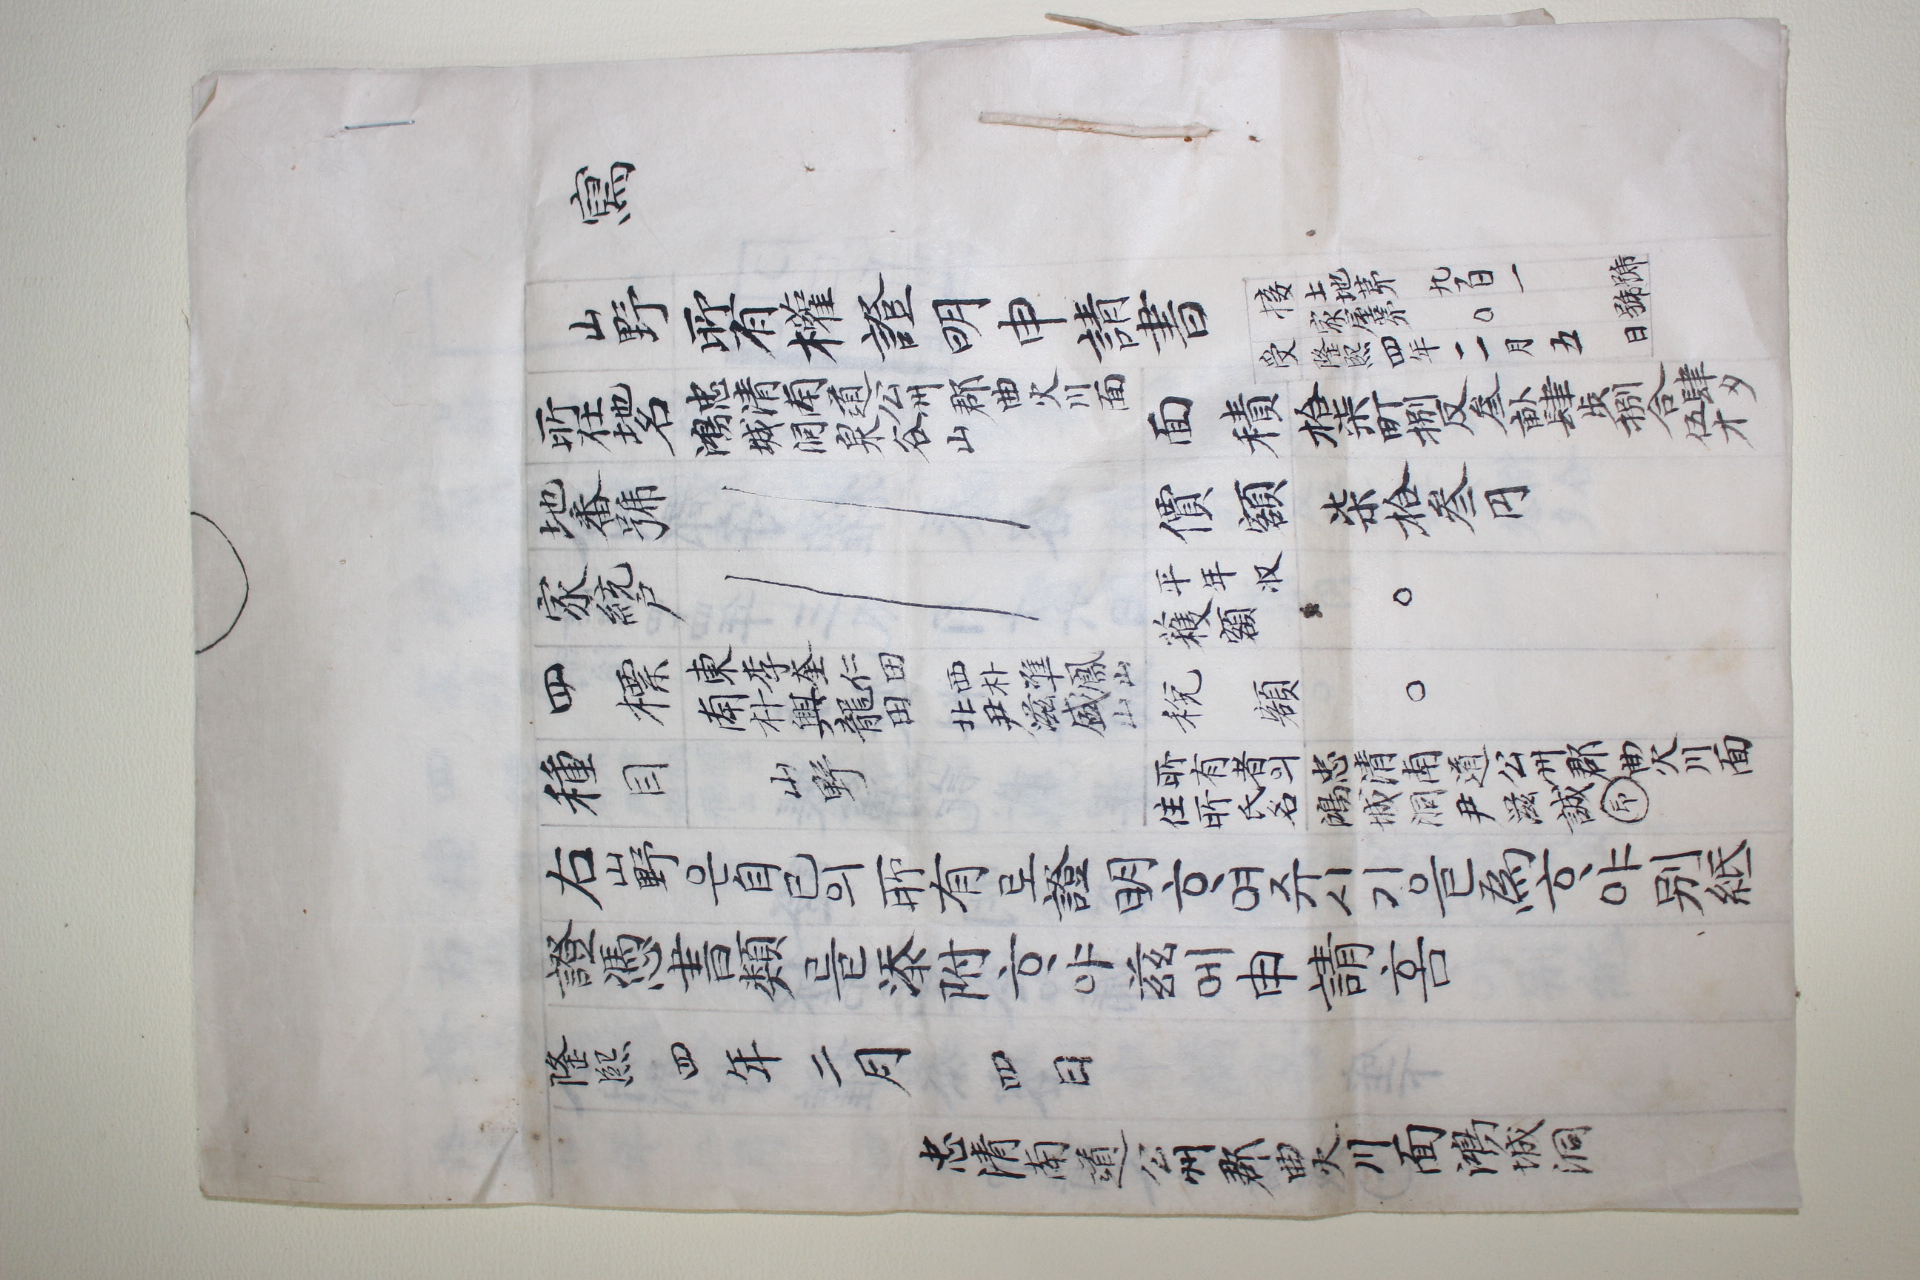 寫
山野所有權證明申請書
接受
土地第九〇一號
家屋第 號
隆熙四年二月五日
所在地名
忠淸南道公州郡曲火川面
鴻城洞泉谷山
面積
拾柒町捌反叁畝肆步捌合肆夕
伍才
地番號
價額
柒拾叁円
家統戶
平年收
穫額
〇
四標
東李奎仁田
南朴興龍田
西朴準鳳山
北尹滋盛山
稅額
〇
種目
山野
所有者의
住所氏名
忠淸南道公州郡曲火川面
鴻城洞尹滋誠 印
右山野은自己의所有로證明ᄒᆞ여주시기을爲ᄒᆞ야別紙
證憑書類를添附ᄒᆞ야玆에申請홈
隆熙四年二月四日
忠淸南道公州郡曲火川面鴻城洞